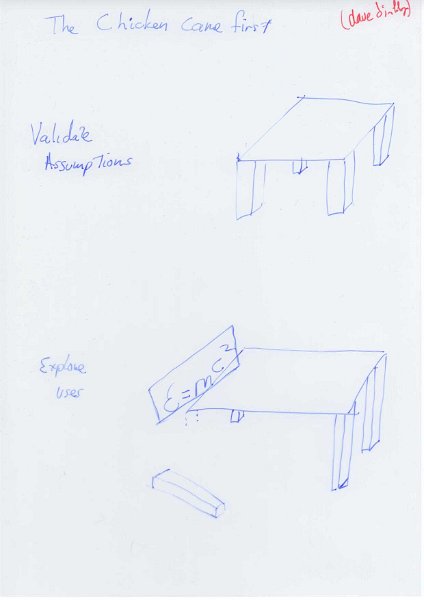 The Chicken Came first
(dave
Validate
Assumptions
Explore
user
E=mc²